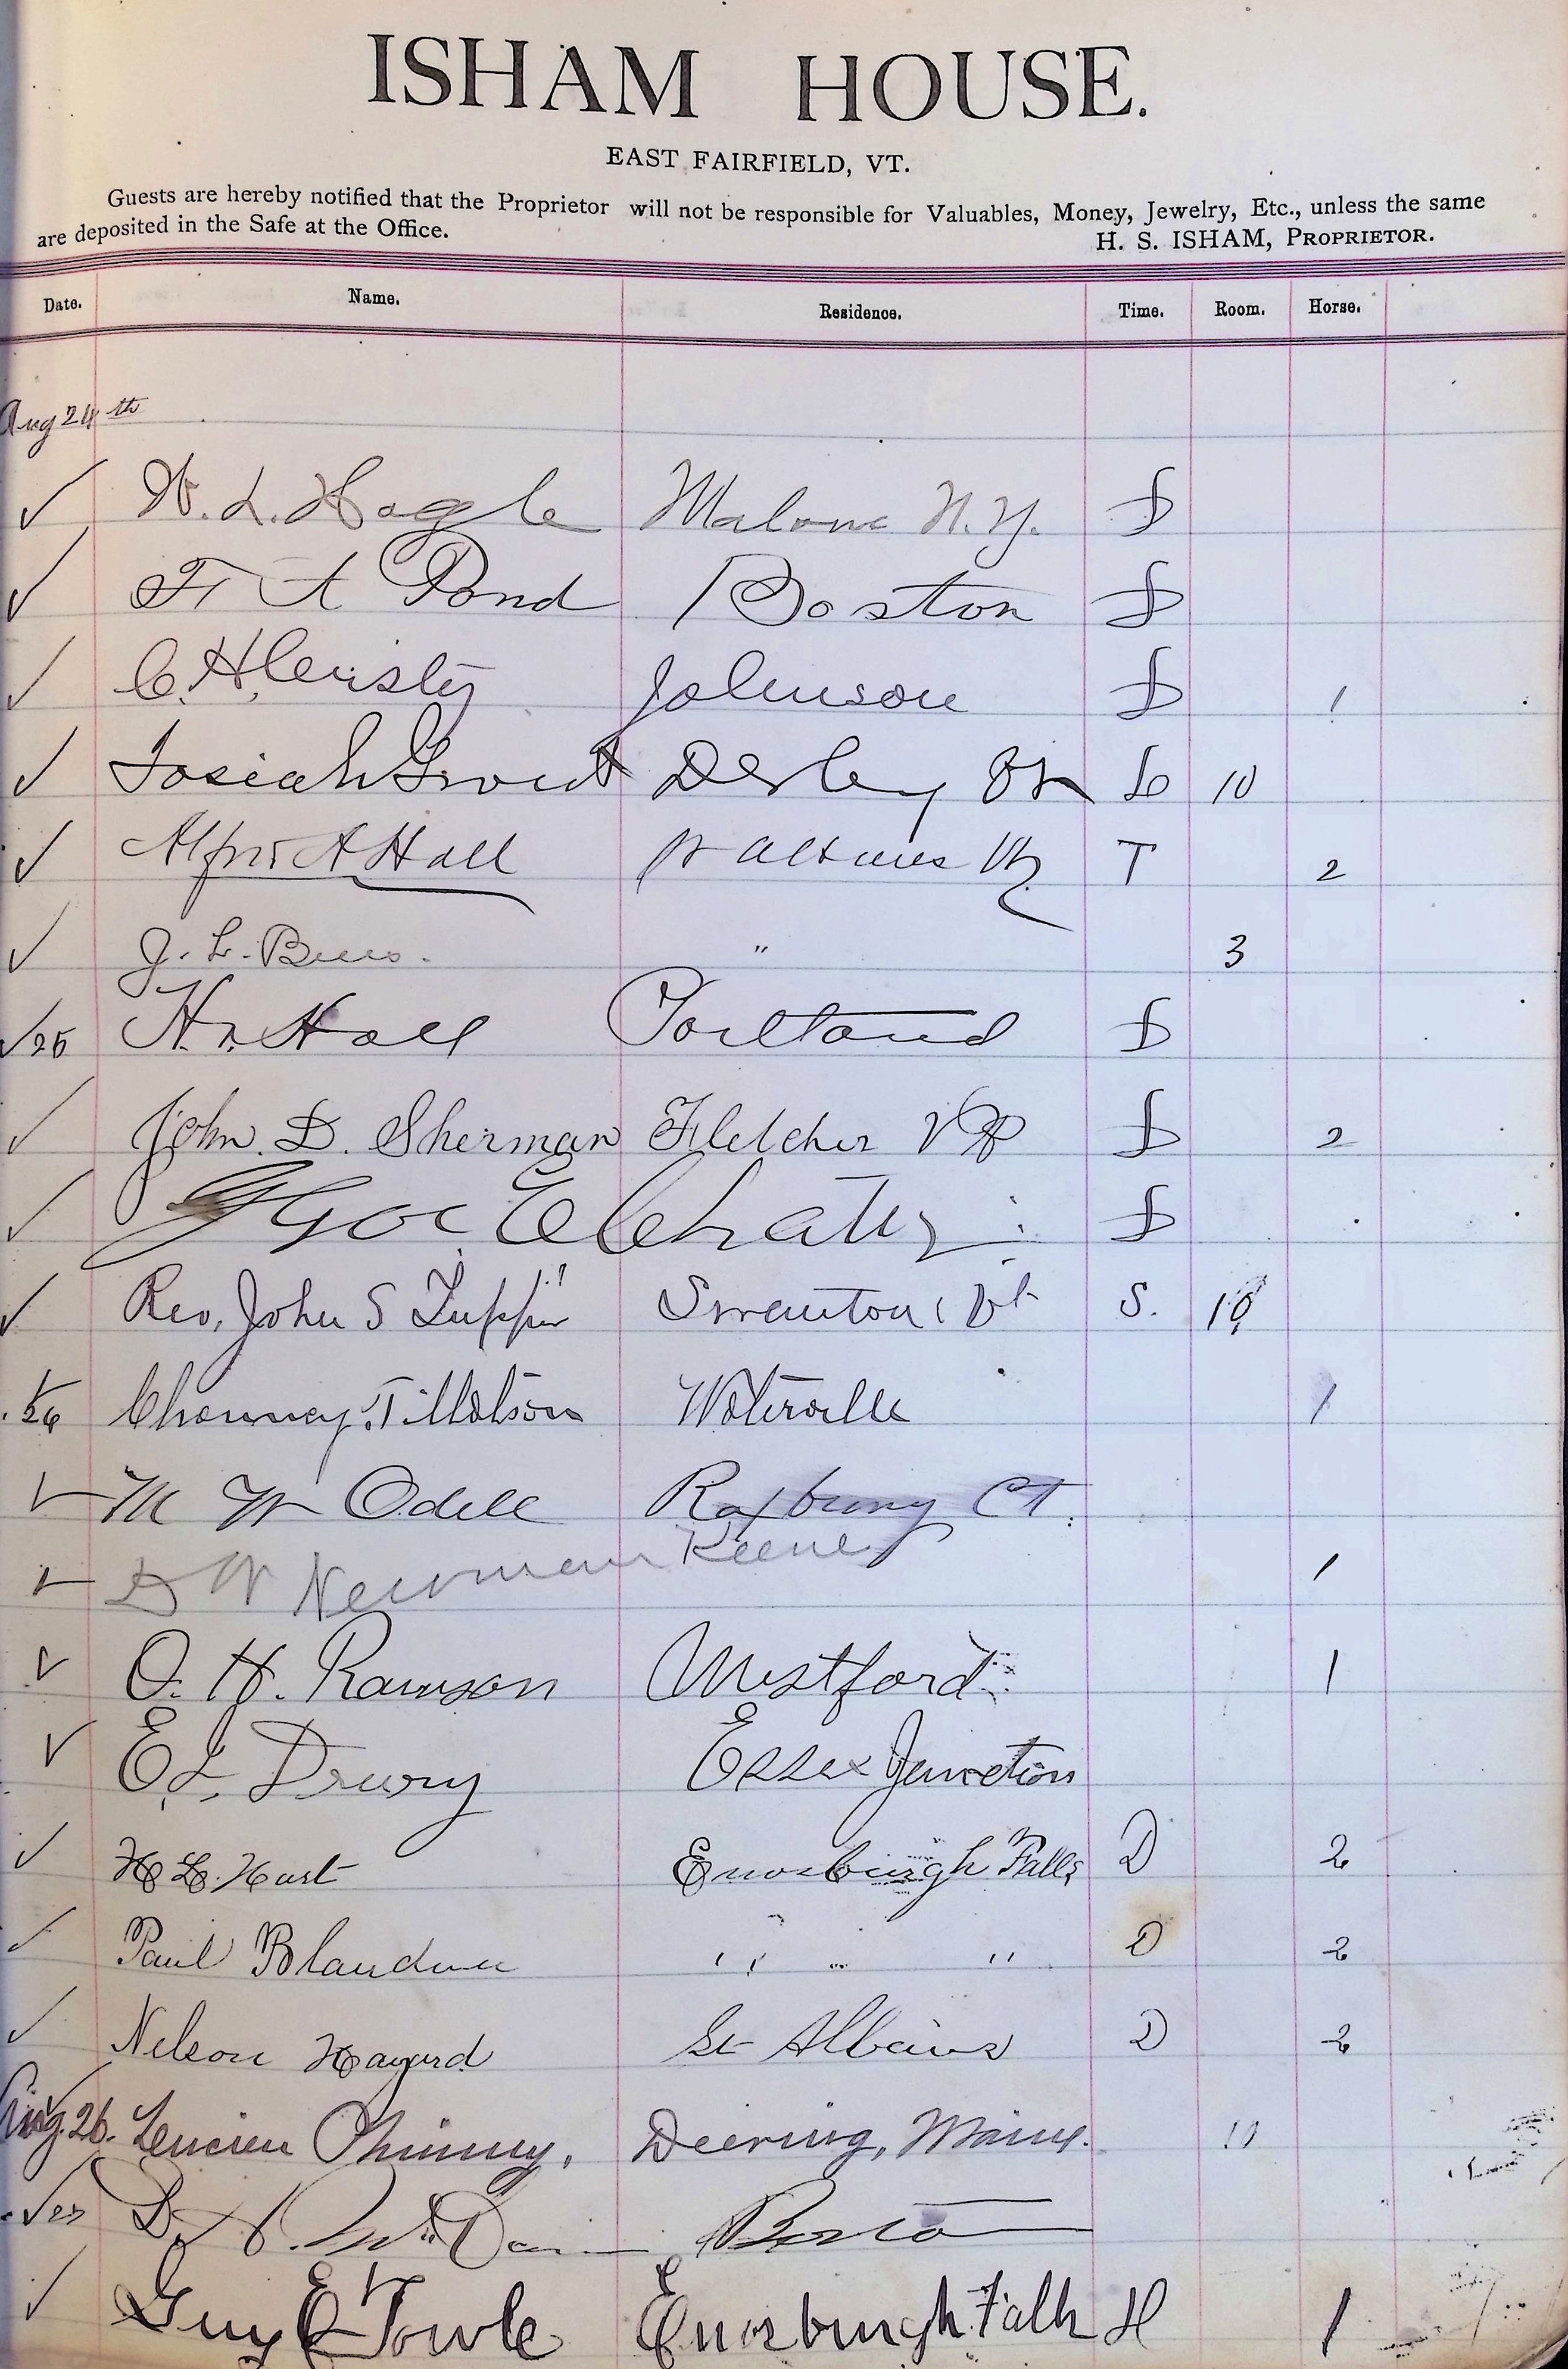 ISHAM HOUSE.
EAST FAIRFIELD, VT.
Guests are hereby notified that the Proprietor will not be responsible for Valuables, Money, Jewelry, Etc., unless the same
are deposited in the Safe at the Office.
H. S. ISHAM, PROPRIETOR.
Date. Name. Residence. Time. Room. Horse.
Aug 24th
✓ W. L. Hogle Malone N.Y. D
✓ F A Pond Boston D
✓ C. H. Johnson D 1
✓ Josiah Grout Derby Vt 10
✓ A Hall St Albans Vt T 2
✓ J. L. " 3
✓ 25 H. Hall Portland D
✓ John. D. Sherman Fletcher Vt D 2
✓ D
✓ Rev, John S Tupper Swanton, Vt S. 10
✓ 26 Chauncey Tillotson Waterville 1
✓ M W Odell Roxbury CT.
✓ D W Newman Keene 1
✓ O. H. Rawson Westford 1
✓ E L Drury Essex Junction
✓ H. L. Hart Enosburgh Falls D 2
✓ Paul " " " D 2
✓ Nelson St Albans D 2
Aug. 26. Lucien Phinney, Deering, Maine. 10
✓ 27 D. Boston
✓ Guy E Towle Enosburgh Falls H 1